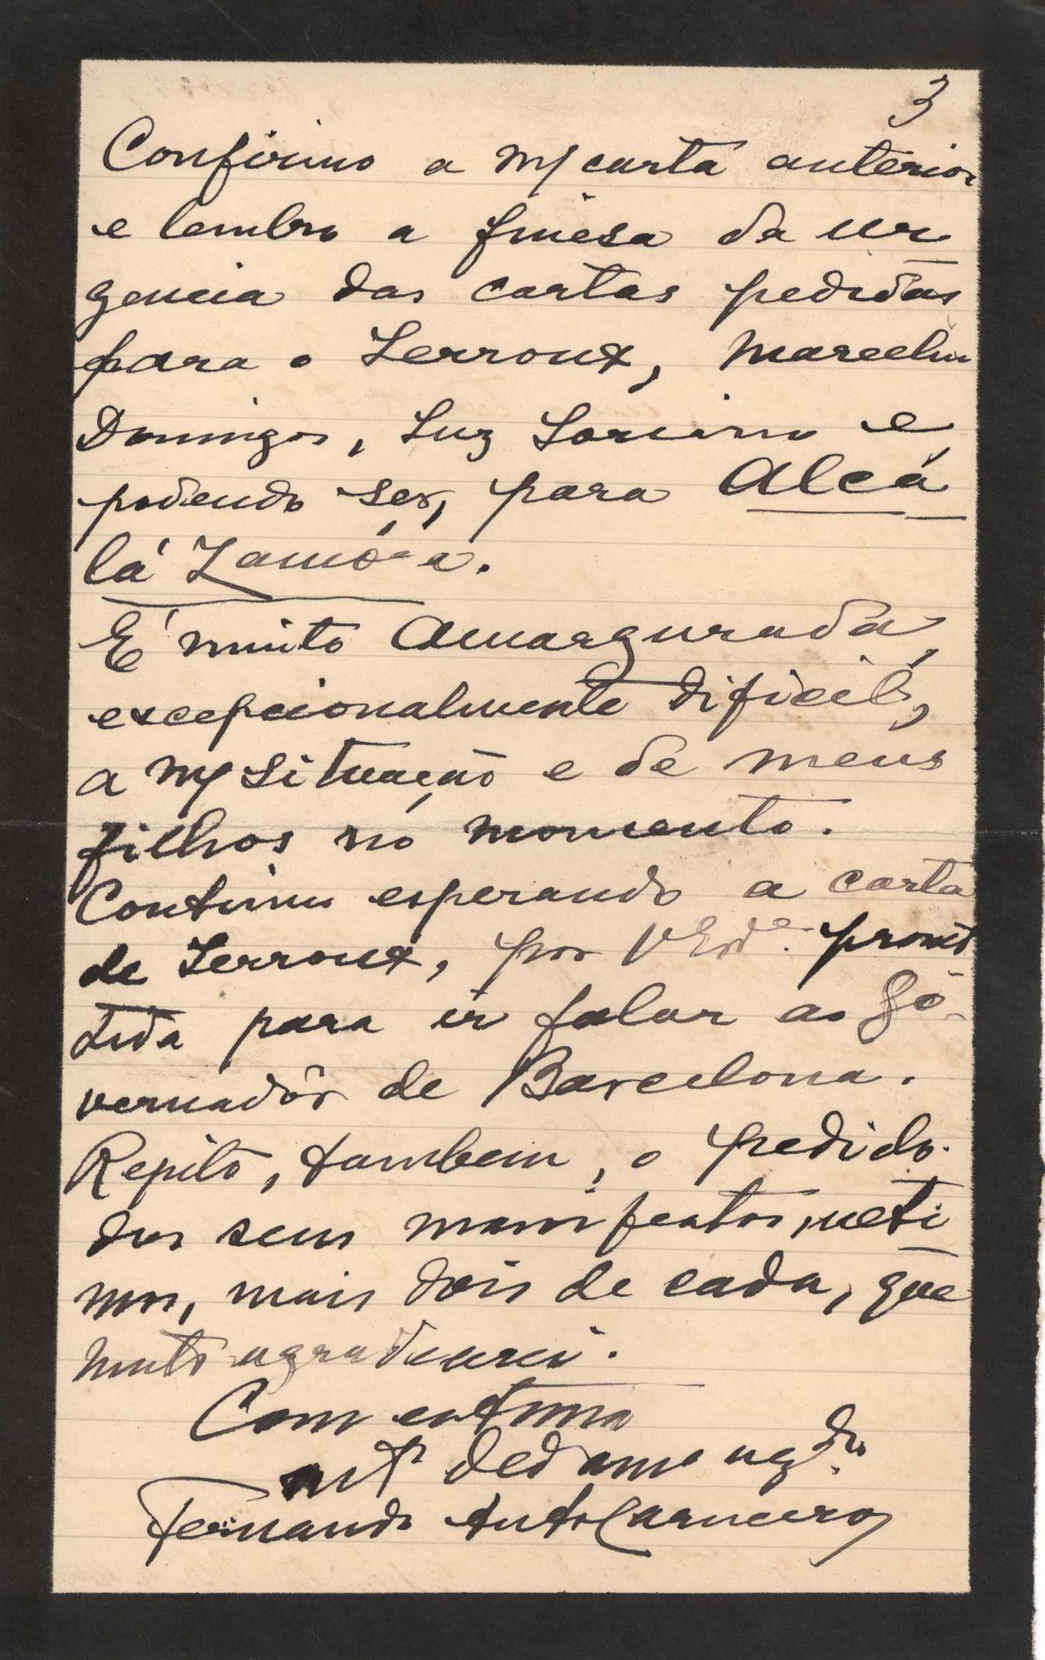 3
Confirmo a m/ carta anterior
e lembro a finesa da ur
gencia das cartas pedidas
para o Lerroux, Marcelino
Domingos, Luz
podendo ser, para Alcá
lá Zamóra.
É muito amargurada,
excepcionalmente dificil,
a m/ situação e de meus
filhos nó momento.
Continuo esperando a carta
de Lerroux, por V. Ex.ª prome
tida para ir falar ao Gô-
vernadôr de Barcelona.
Repito, tambem, o pedido
dos seus manifestos, ueti
mos, mais dois de cada, que
muito agradecerei.
Com estima
mt.º ded amº agdº
Fernando Carneiro